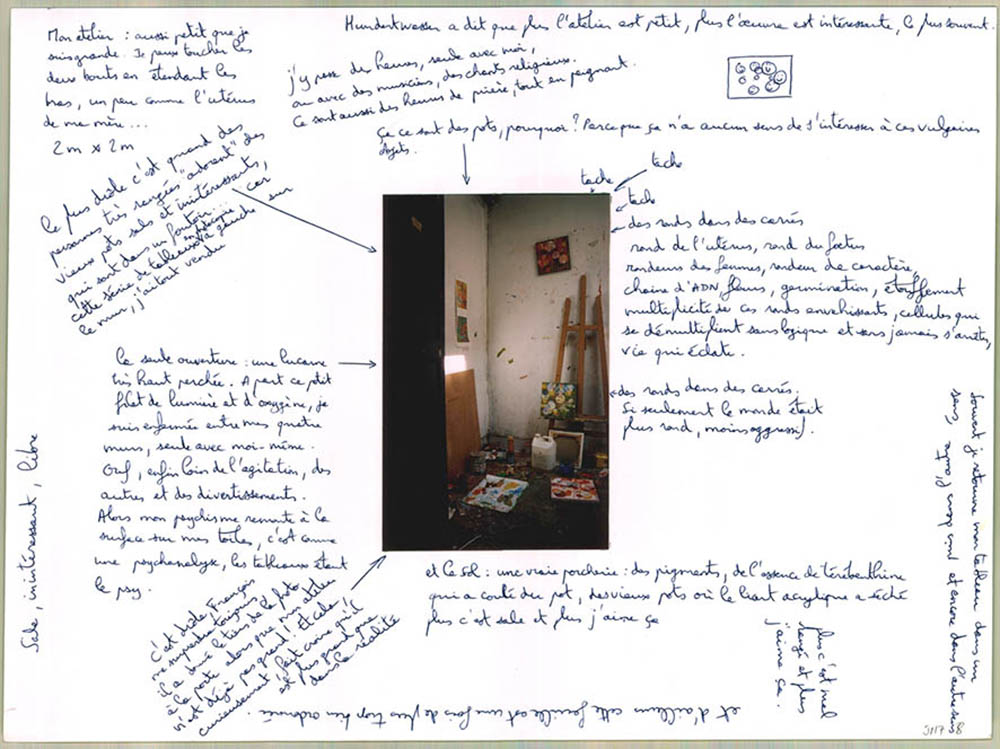 Mon atelier : aussi petit que je
suis grande. Je peux toucher les
deux bouts en étendant les
bras, un peu comme l'utérus
de ma mère...
2m x 2m
Hundertwasser a dit que plus l'atelier est petit, plus l'œuvre est intéressante, le plus souvent.
j'y passe des heures, seule avec moi,
ou avec des musiciens, des chants religieux.
Ce sont aussi des heures de prière, tout en peignant.
Ça ce sont des pots, pourquoi ? Parce que ça n'a aucun sens de s'intéresser à ces vulgaires
objets.
tache
tache
tache
Le plus drôle c'est quand des
personnes très rangées "adorent" des
vieux pots sales et inintéressants,
qui sont dans un foutoir... car
cette série de tableaux à gauche sur
le mur, j'ai tout vendu
des ronds dans des carrés
rond de l'utérus, rond du foetus
rondeurs des femmes, rondeur de caractère,
chaîne d'ADN, fleurs, germination, étouffement
multiplicité de ces ronds envahissants, cellules qui
se démultiplient sans logique et sans jamais s'arrêter,
vie qui éclate.
La seule ouverture : une lucarne
très haut perchée. A part ce petit
filet de lumière et d'oxygène, je
suis enfermée entre mes quatre
murs, seule avec moi-même.
Ouf, enfin loin de l'agitation, des
autres et des divertissements.
Alors mon psychisme remonte à la
surface sur mes toiles, c'est comme
une psychanalyse, les tableaux étant
le psy.
des ronds dans des carrés.
Si seulement le monde était
plus rond, moins agressif.
Souvent je retourne mon tableau dans un
sens, après
puis et encore dans l'autre sens
Sale, inintéressant, libre
et le sol : une vraie porcherie : des pigments, de l'essence de térébenthine
qui a coulé du pot, des vieux pots où le liant acrylique a séché
plus c'est sale et plus j'aime ça
c'est drôle, François
me surprendra toujours,
il a donné le tiers de la photo
à la porte alors que mon atelier
n'est déjà pas grand ! et cela,
curieusement, fait croire qu'il
est plus grand que
dans la réalité
plus c'est mal
rangé et plus
j'aime ça.
et d'ailleurs cette feuille est une fois de plus trop bien ordonnée.